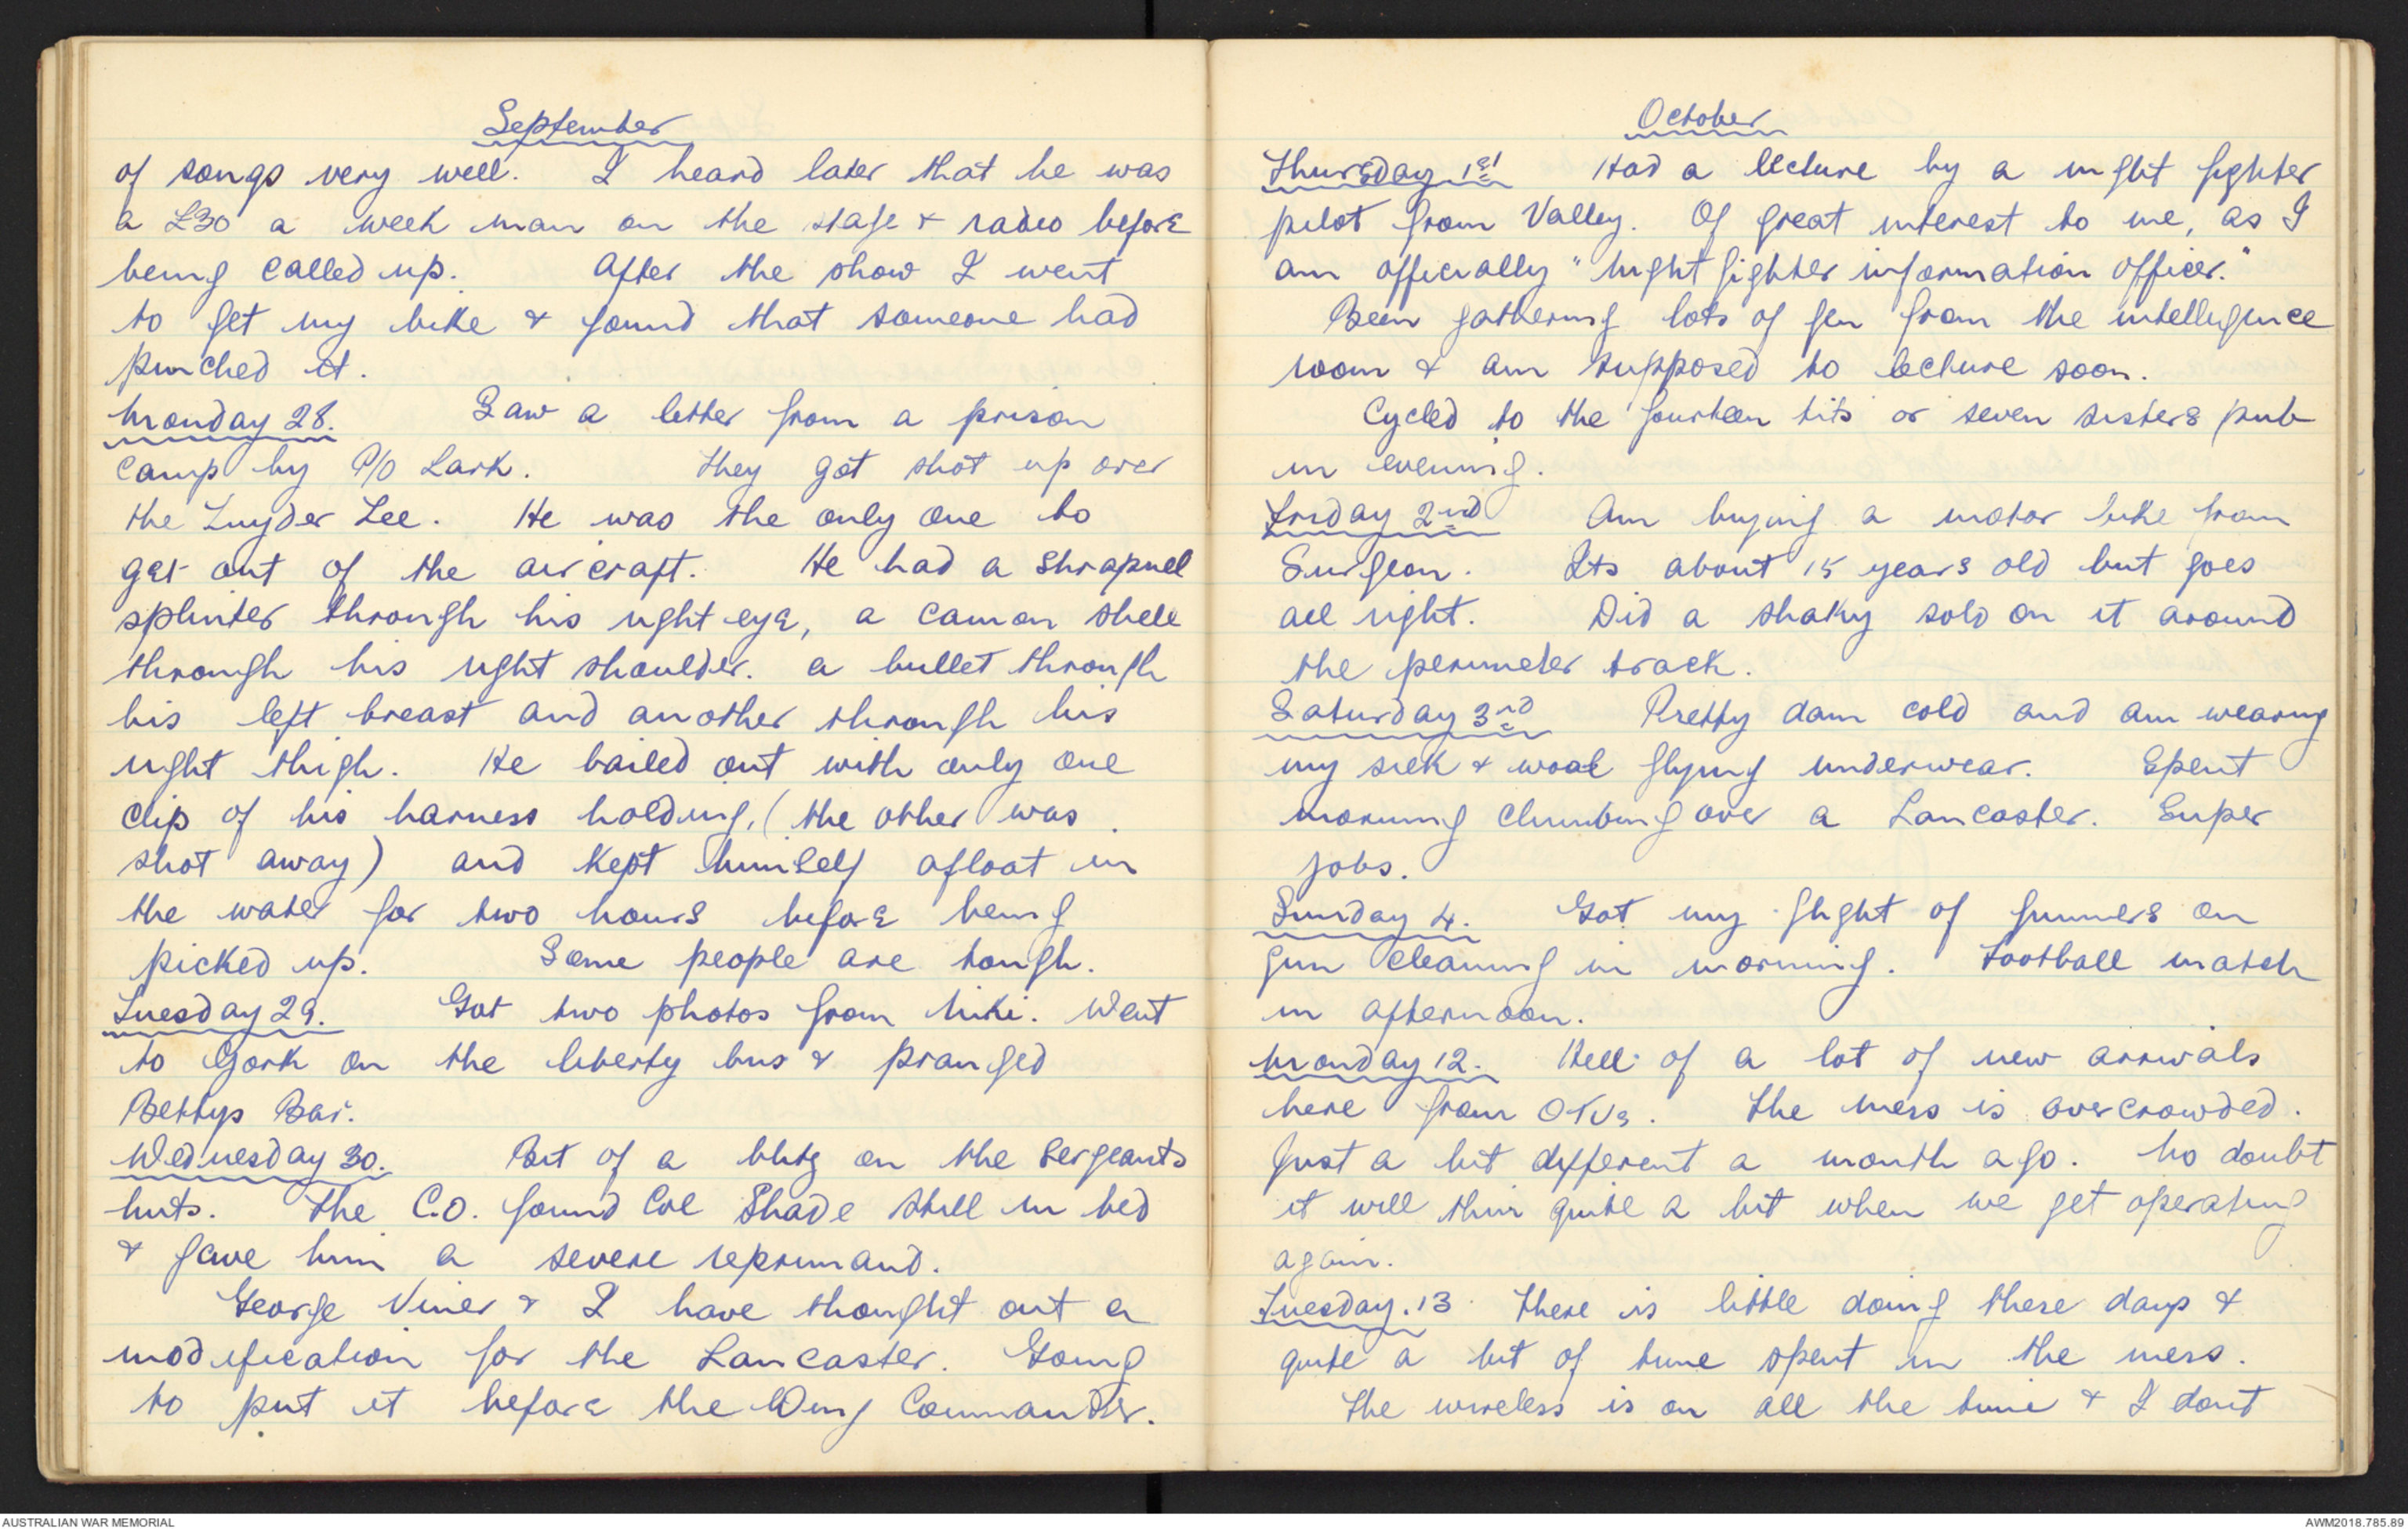 September
of songs very well. I heard later that he was
a £30 a week man on the stage & radio before
being called up. After the show I went
to get my bike & found that someone had
pinched it.
Monday 28. Saw a letter from a prison
camp by P/O Lark. They got shot up over
the Zuyder Zee. He was the only one to
get out of the aircraft. He had a shrapnel
splinter through his right eye, a cannon shell
through his right shoulder. a bullet through
his left breast and another through his
right thigh. He bailed out with only one
clip of his harness holding, (the other was
shot away) and kept himself afloat in
the water for two hours before being
picked up. Some people are tough.
Tuesday 29. Got two photos from Niki. Went
to York on the liberty bus & pranged
Bettys Bar.
Wednesday 30. Bit of a blitz on the sergeants
huts. The C.O. found Col Shade still in bed
& gave him a severe reprimand.
George Viner & I have thought out a
modification for the Lancaster. Going
to put it before the Wing Commander.
October
Thursday 1st Had a lecture by a night fighter
pilot from Valley. Of great interest to me, as I
am officially "night fighter information officer."
Been gathering lots of gen from the intelligence
room & am supposed to lecture soon.
Cycled to the fourteen tits or seven sisters pub
in evening.
Friday 2nd Am buying a motor bike from
Surgeon. Its about 15 years old but goes
all right. Did a shaky solo on it around
the perimeter track.
Saturday 3rd Pretty dam cold and am wearing
my silk & wool flying underwear. Spent
morning climbing over a Lancaster. Super
jobs.
Sunday 4. Got my flight of gunners on
gun cleaning in morning. Football match
in afternoon.
Monday 12. Hell of a lot of new arrivals
here from OTUs. The mess is overcrowded.
Just a bit different a month ago. No doubt
it will thin quite a bit when we get operating
again.
Tuesday. 13 There is little doing these days &
quite a bit of time spent in the mess.
The wireless is on all the time & I dont
AUSTRALIAN WAR MEMORIAL
AWM2018.785.89